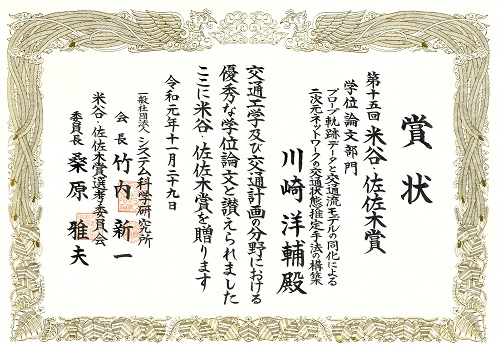 賞状
第十五回 米谷・佐佐木賞
学位論文部門
プローブ軌跡データと交通流モデルの同化による
二次元ネットワークの交通状態推定手法の構築
川崎洋輔殿
交通工学及び交通計画の分野における
優秀な学位論文と讃えられました
ここに米谷・佐佐木賞を贈ります
令和元年十一月二十九日
一般社団法人 システム科学研究所
会長 竹内新一
米谷・佐佐木賞選考委員会
委員長 桑原雅夫